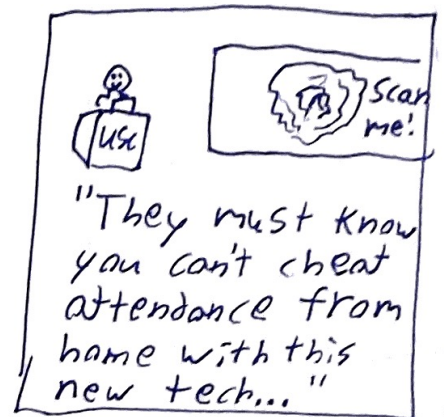 USC
Scan
me!
"They must know
you can't cheat
attendance from
home with this
new tech..."